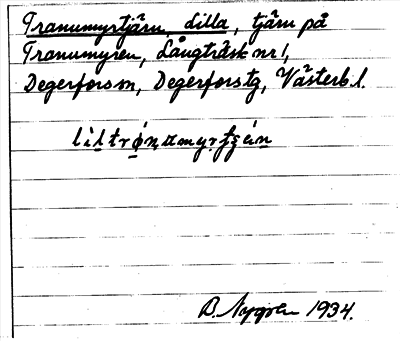 Tranumyrtjärn, Lilla, tjärn på
Tranumyren, Långträsk nr 1,
Degerfors sn, Degerfors tg, Västerb. l.
B. Nygren 1934.